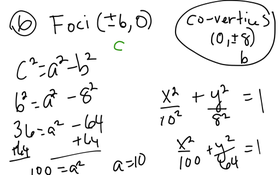 b Foci (±6, 0)
c
co-vertices
(0, ±8)
b
c² = a² - b²
b² = a² - 8²
36 = a² - 64
+64 +64
100 = a²
a = 10
x²/10² + y²/8² = 1
x²/100 + y²/64 = 1